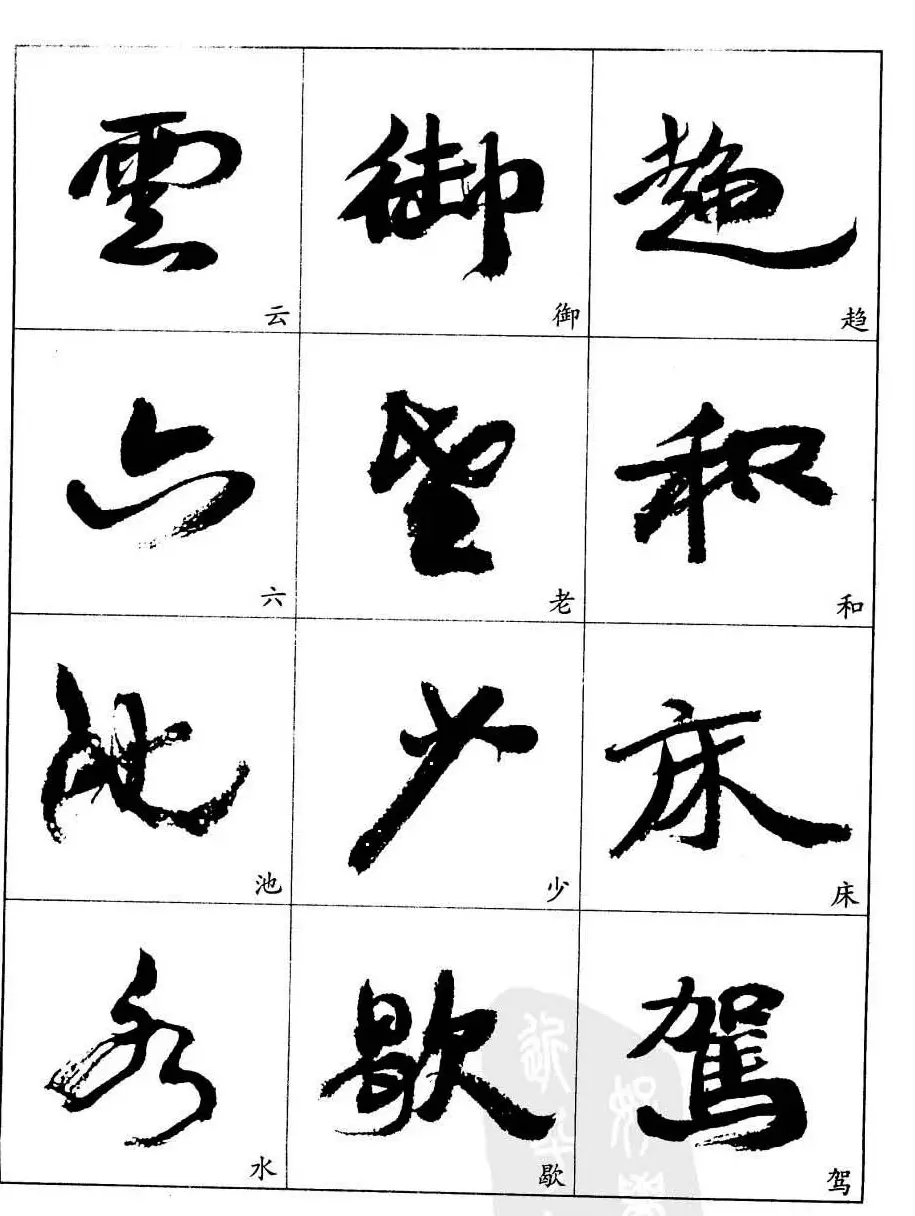 雲 御 趍
云 御 趋
六 和
六 老 和
池 少 床
池 少 床
水 歇 駕
水 歇 驾